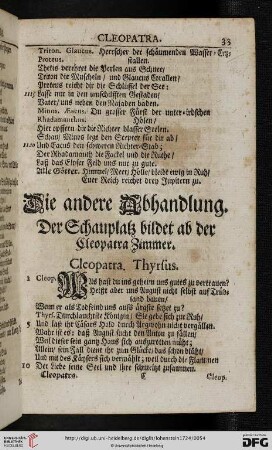 CLEOPATRA. 33
Triton. Glaucus. Herrscher der schäumenden Wasser-Cry-
Proteus. stallen.
Thetis verehret die Perlen aus Schnee/
Triton die Muscheln/ und Glaucus Corallen/
Proteus reicht dir die Schlüssel der See:
1115 Lasse nur in den umschilfften Gestaden/
Vater/ uns neben den Najaden baden.
Minos. Æacus. Du grosser Fürst der unter-irdschen
Rhadamanthus. Hölen/
Hier opffern dir die Richter blasser Seelen.
Schau! Minos legt den Scepter für dir ab/
1120 Und Eacus den schweren Richter-Stab;
Der Rhadamanth die Fackel und die Ruthe/
Laß das Elyser Feld uns nur zu gute.
Alle Götter. Himmel/ Meer/ Hölle/ bleibt ewig in Ruh/
Euer Reich reichet drey Jupitern zu.
Die andere Abhandlung.
Der Schauplatz bildet ab der
Cleopatra Zimmer.
Cleopatra. Thyrsus.
1 Cleop. Was hast du ins geheim uns gutes zu vertrauen?
Heißt aber uns August nicht selbst auf Trüb-
sand bauen/
Wenn er als Todfeind uns aufs ärgste setzet zu?
Thyrs. Durchlauchtste Königin/ Sie gebe sich zur Ruh/
5 Und laß ihr Cäsars Huld durch Argwohn nicht vergällen.
Wahr ist es: daß August sucht den Anton zu fällen/
Weil dieser sein gantz Haus sich aufzureiben müht;
Allein/ sein Fall dient ihr zum Glücke/ das schon blüht/
Und mit des Käysers sich vermählt/ weil durch die Flammen
10 Der Liebe seine Seel und ihre schmeltzt zusammen.
Cleopatra. Cleop.
http://digi.ub.uni-heidelberg.de/diglit/lohenstein1724/0054
© Universitätsbibliothek Heidelberg